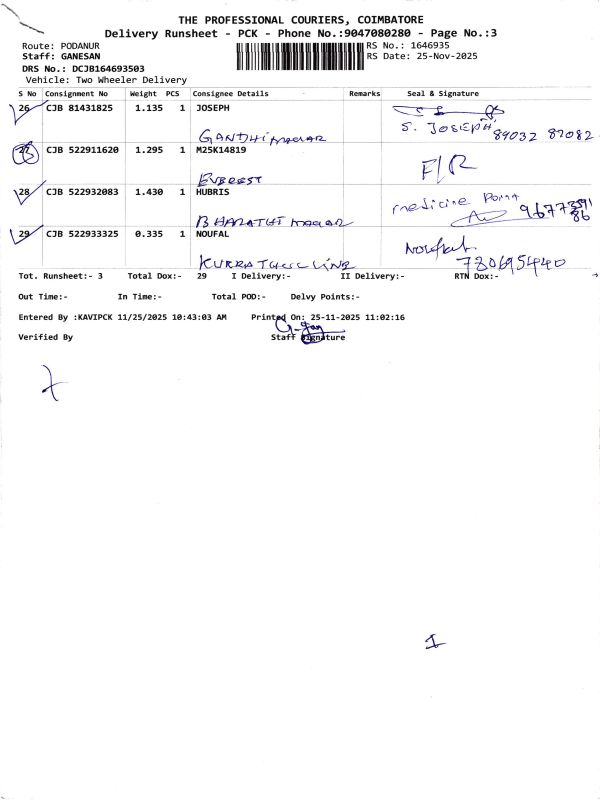 THE PROFESSIONAL COURIERS, COIMBATORE
Delivery Runsheet - PCK - Phone No.:9047080280 - Page No.:3
Route: PODANUR RS No.: 1646935
Staff: GANESAN RS Date: 25-Nov-2025
DRS No.: DCJB164693503
Vehicle: Two Wheeler Delivery
S No Consignment No Weight PCS Consignee Details Remarks Seal & Signature
26 CJB 81431825 1.135 1 JOSEPH
S. JOSEPH 89032 87082
GANDHI NAGAR
27 CJB 522911620 1.295 1 M25K14819
F/R
EVEREST
28 CJB 522932083 1.430 1 HUBRIS
medicine Point
BHARATHI NAGAR
29 CJB 522933325 0.335 1 NOUFAL
Noufal
7806955440
KURRATHUL LINE
Tot. Runsheet:- 3 Total Dox:- 29 I Delivery:- II Delivery:- RTN Dox:-
Out Time:- In Time:- Total POD:- Delvy Points:-
Entered By :KAVIPCK 11/25/2025 10:43:03 AM Printed On: 25-11-2025 11:02:16
Verified By Staff Signature